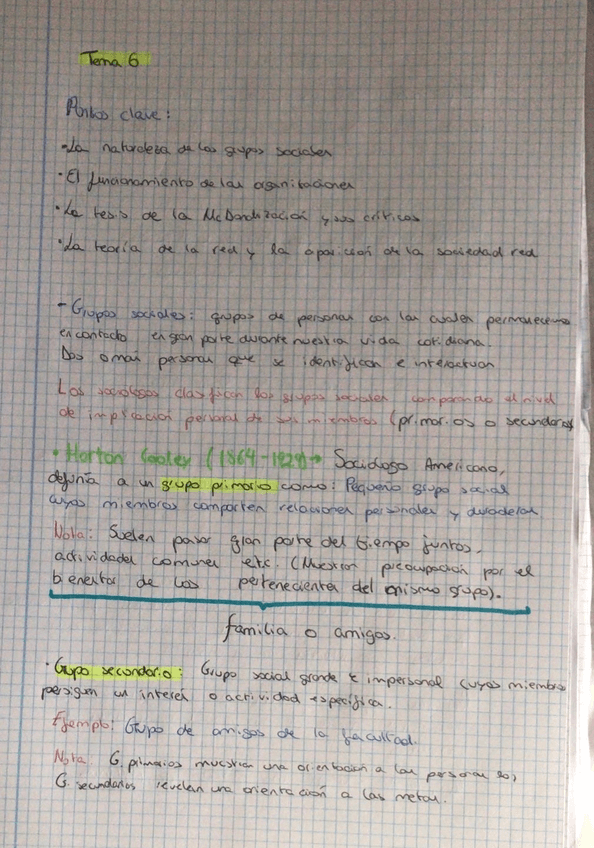 Tema 6
Puntos clave:
·La naturaleza de los grupos sociales
·El funcionamiento de las organizaciones
·La tesis de la McDonalización y sus críticos
·La teoría de la red y la aparición de la sociedad red
- Grupos sociales: grupos de personas con las cuales permanecemos
en contacto en gran parte durante nuestra vida cotidiana.
Dos o más personas que se identifican e interactúan
Los sociólogos clasifican los grupos sociales comparando el nivel
de implicación personal de sus miembros (primarios o secundarios)
· Horton Cooley (1864-1929)→ Sociólogo Americano,
definía a un grupo primario como: Pequeño grupo social
cuyos miembros comparten relaciones personales y duraderas
Nota: Suelen pasar gran parte del tiempo juntos,
actividades comunes etc. (Muestran preocupación por el
bienestar de los pertenecientes del mismo grupo).
familia o amigos.
· Grupo secundario: Grupo social grande e impersonal cuyos miembros
persiguen un interés o actividad específica.
Ejemplo: Grupo de amigos de la facultad.
Nota G. primarios muestran una orientación a las personas
G. secundarios revelan una orientación a las metas.